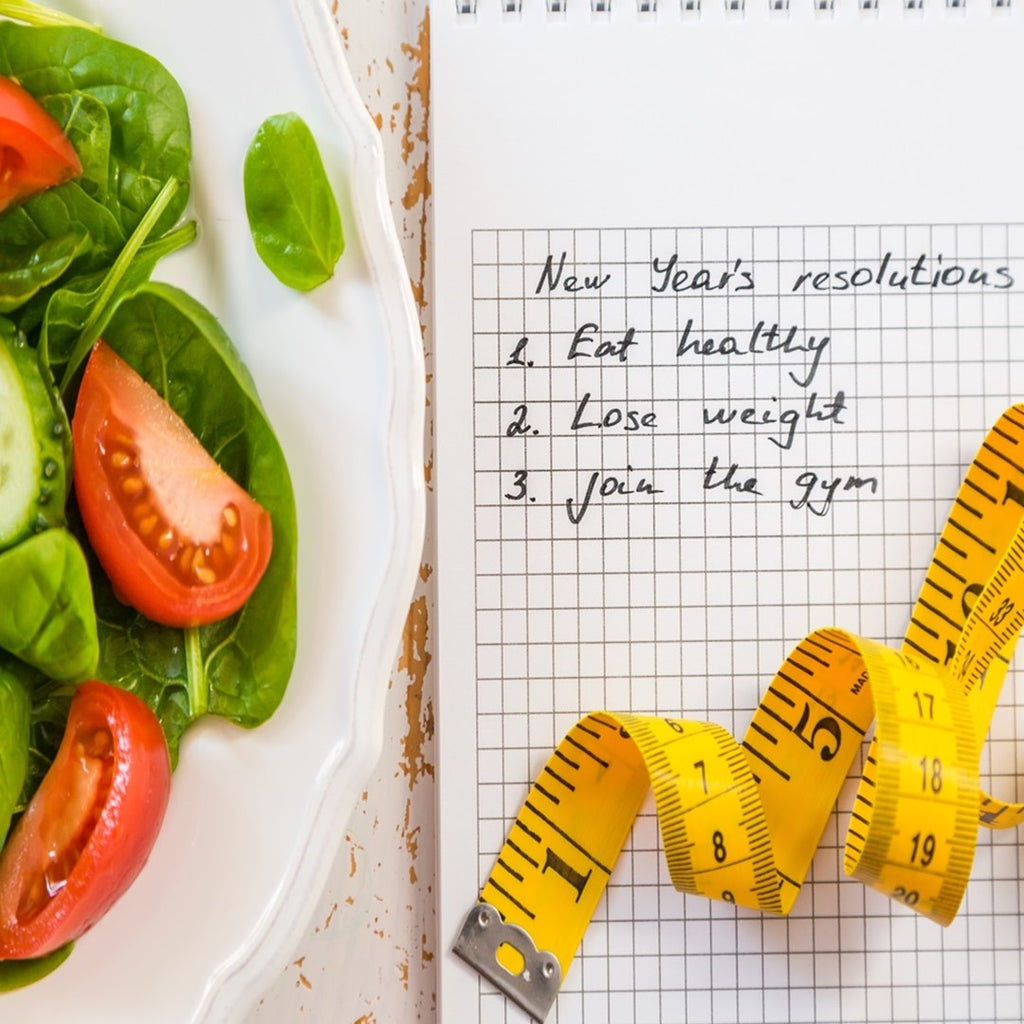 New Year's resolutions
1. Eat healthy
2. Lose weight
3. join the gym
1
5
6
7
8
9
17
18
19
20